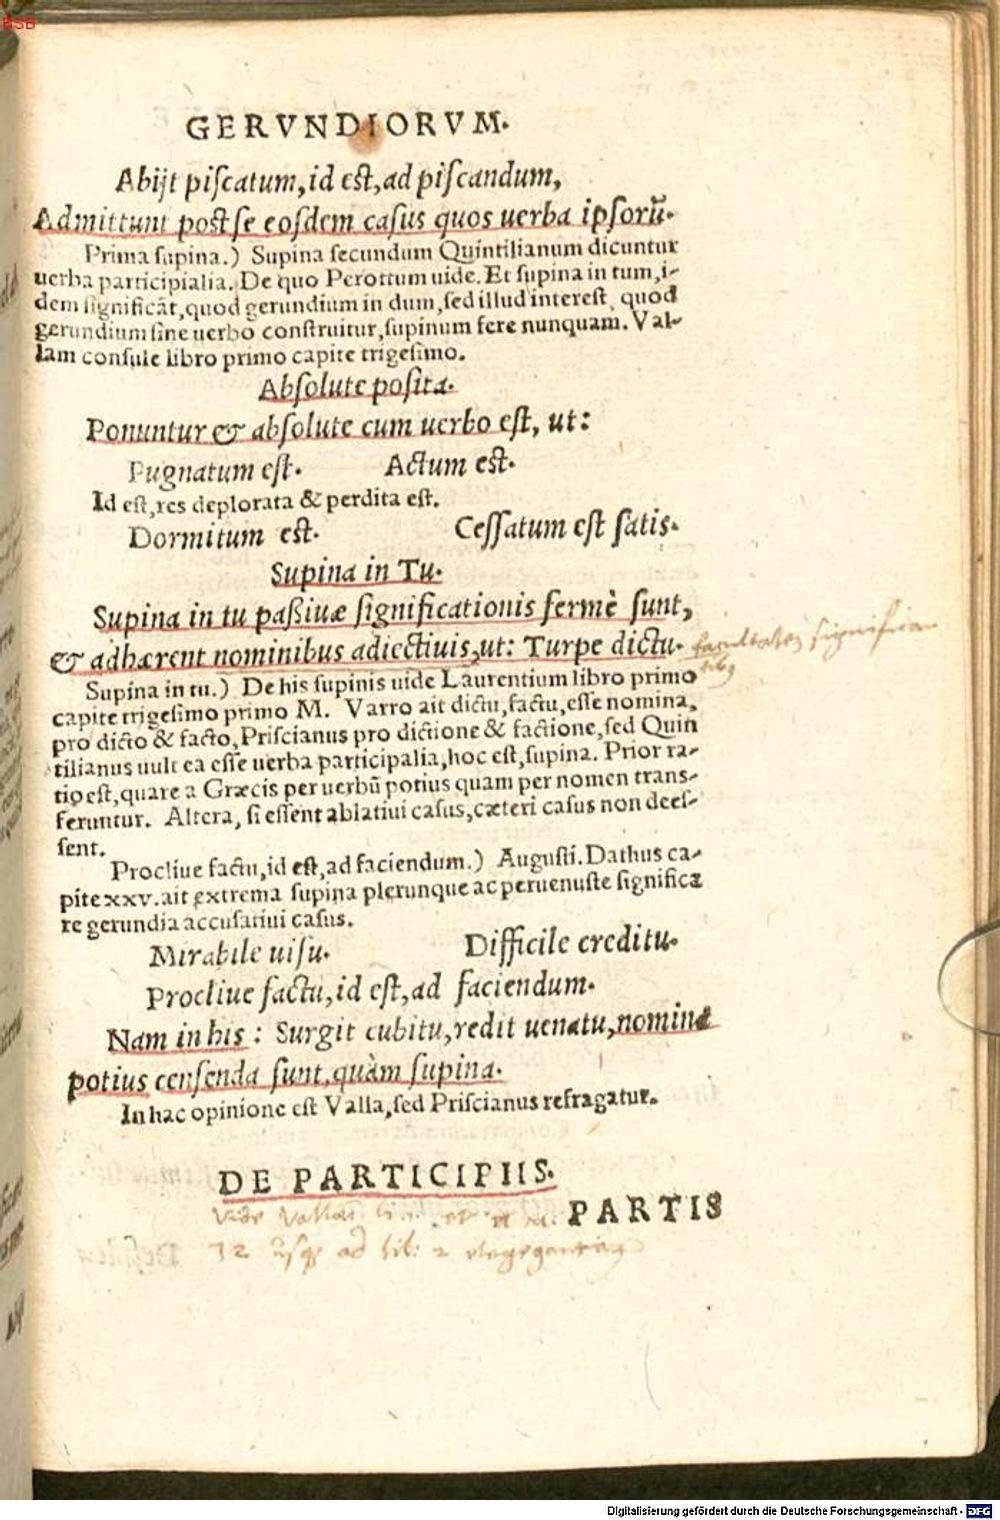 BSB
GERVNDIORVM.
Abijt piſcatum, id eſt, ad piſcandum,
Admittunt poſt ſe eoſdem caſus quos uerba ipſorũ.
Prima ſupina.) Supina ſecundum Quintilianum dicuntur
uerba participialia. De quo Perottum uide. Et ſupina in tum, i-
dem ſignificãt, quod gerundium in dum, ſed illud intereſt, quod
gerundium ſine uerbo conſtruitur, ſupinum fere nunquam. Val-
lam conſule libro primo capite trigeſimo.
Abſolute poſita.
Ponuntur & abſolute cum uerbo eſt, ut:
Pugnatum eſt. Actum eſt.
Id eſt, res deplorata & perdita eſt.
Dormitum eſt. Ceſſatum eſt ſatis.
Supina in Tu.
Supina in tu paßiuæ ſignificationis fermè ſunt,
& adhærent nominibus adiectiuis, ut: Turpe dictu.
Supina in tu.) De his ſupinis uide Laurentium libro primo
capite trigeſimo primo M. Varro ait dictu, factu, eſſe nomina,
pro dicto & facto, Priſcianus pro dictione & factione, ſed Quin
tilianus uult ea eſſe uerba participalia, hoc eſt, ſupina. Prior ra-
tio eſt, quare a Græcis per uerbũ potius quam per nomen trans-
feruntur. Altera, ſi eſſent ablatiui caſus, cæteri caſus non deeſ-
ſent.
Procliue factu, id eſt, ad faciendum.) Auguſti. Dathus ca-
pite xxv. ait extrema ſupina plerunque ac peruenuſte ſignifica
re gerundia accuſatiui caſus.
Mirabile uiſu. Difficile creditu.
Procliue factu, id eſt, ad faciendum.
Nam in his: Surgit cubitu, redit uenatu, nomina
potius cenſenda ſunt, quàm ſupina.
In hac opinione eſt Valla, ſed Priſcianus refragatur.
DE PARTICIPIIS.
PARTIS
Vide
32 uſq ad lib: 2
Digitalisierung gefördert durch die Deutsche Forschungsgemeinschaft - DFG